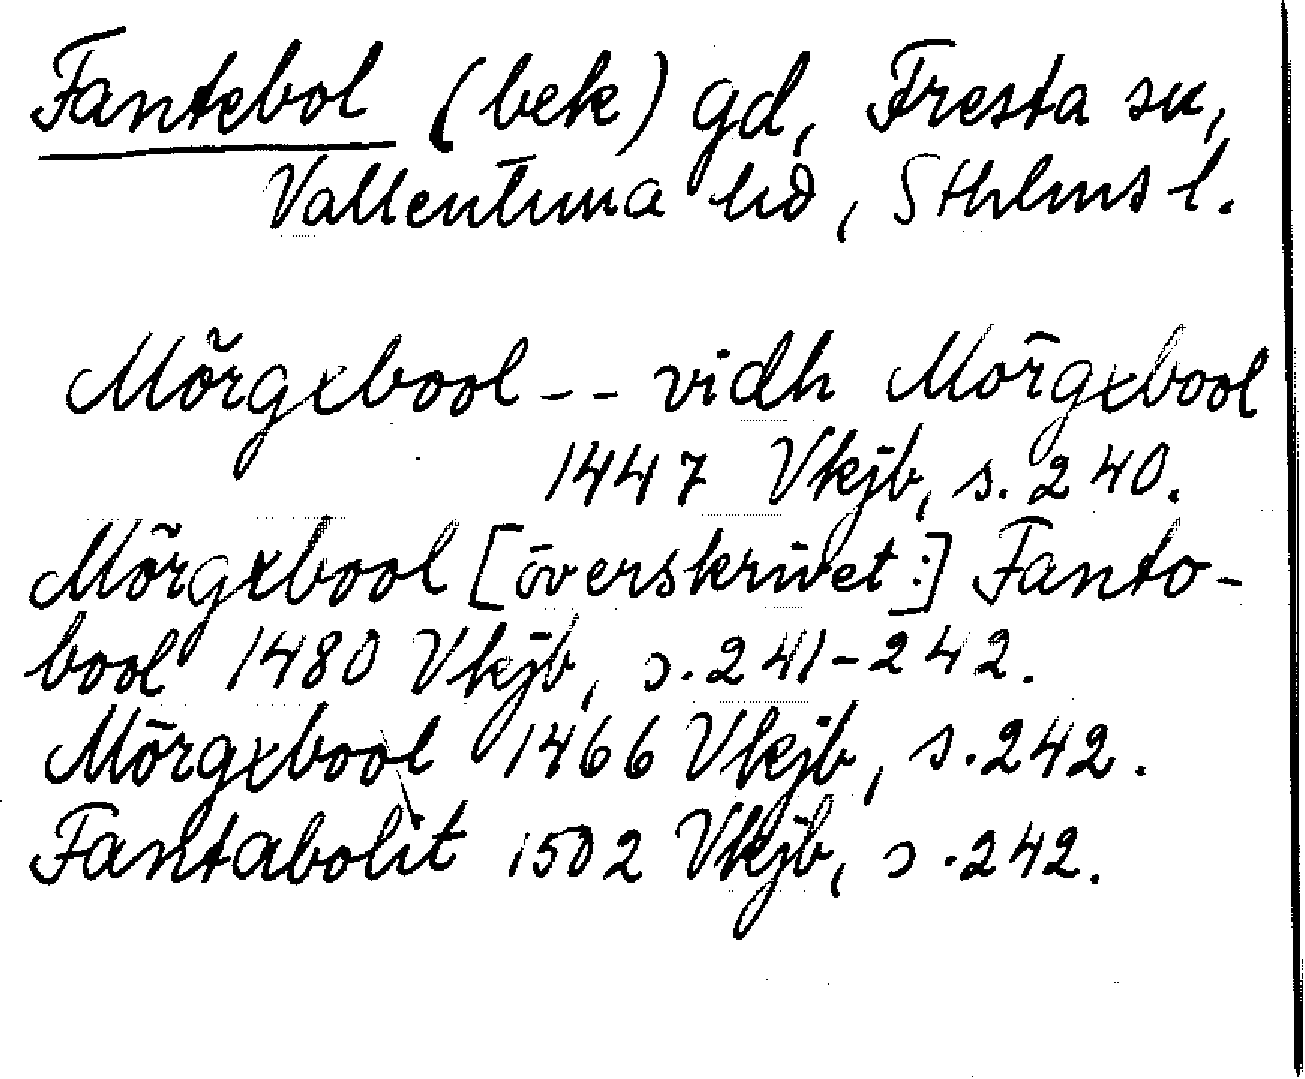 Fantebol (bek) gd, Fresta sn,
Vallentuna hd, Sthlms l.
Mörgxbool -- vidh Mörgxbool
1447 Vkjb, s. 240.
Mörgxbool [överskrivet:] Fanto-
bool 1480 Vkjb, s. 241-242.
Mörgxbool 1466 Vkjb, s. 242.
Fantabolit 1502 Vkjb, s. 242.